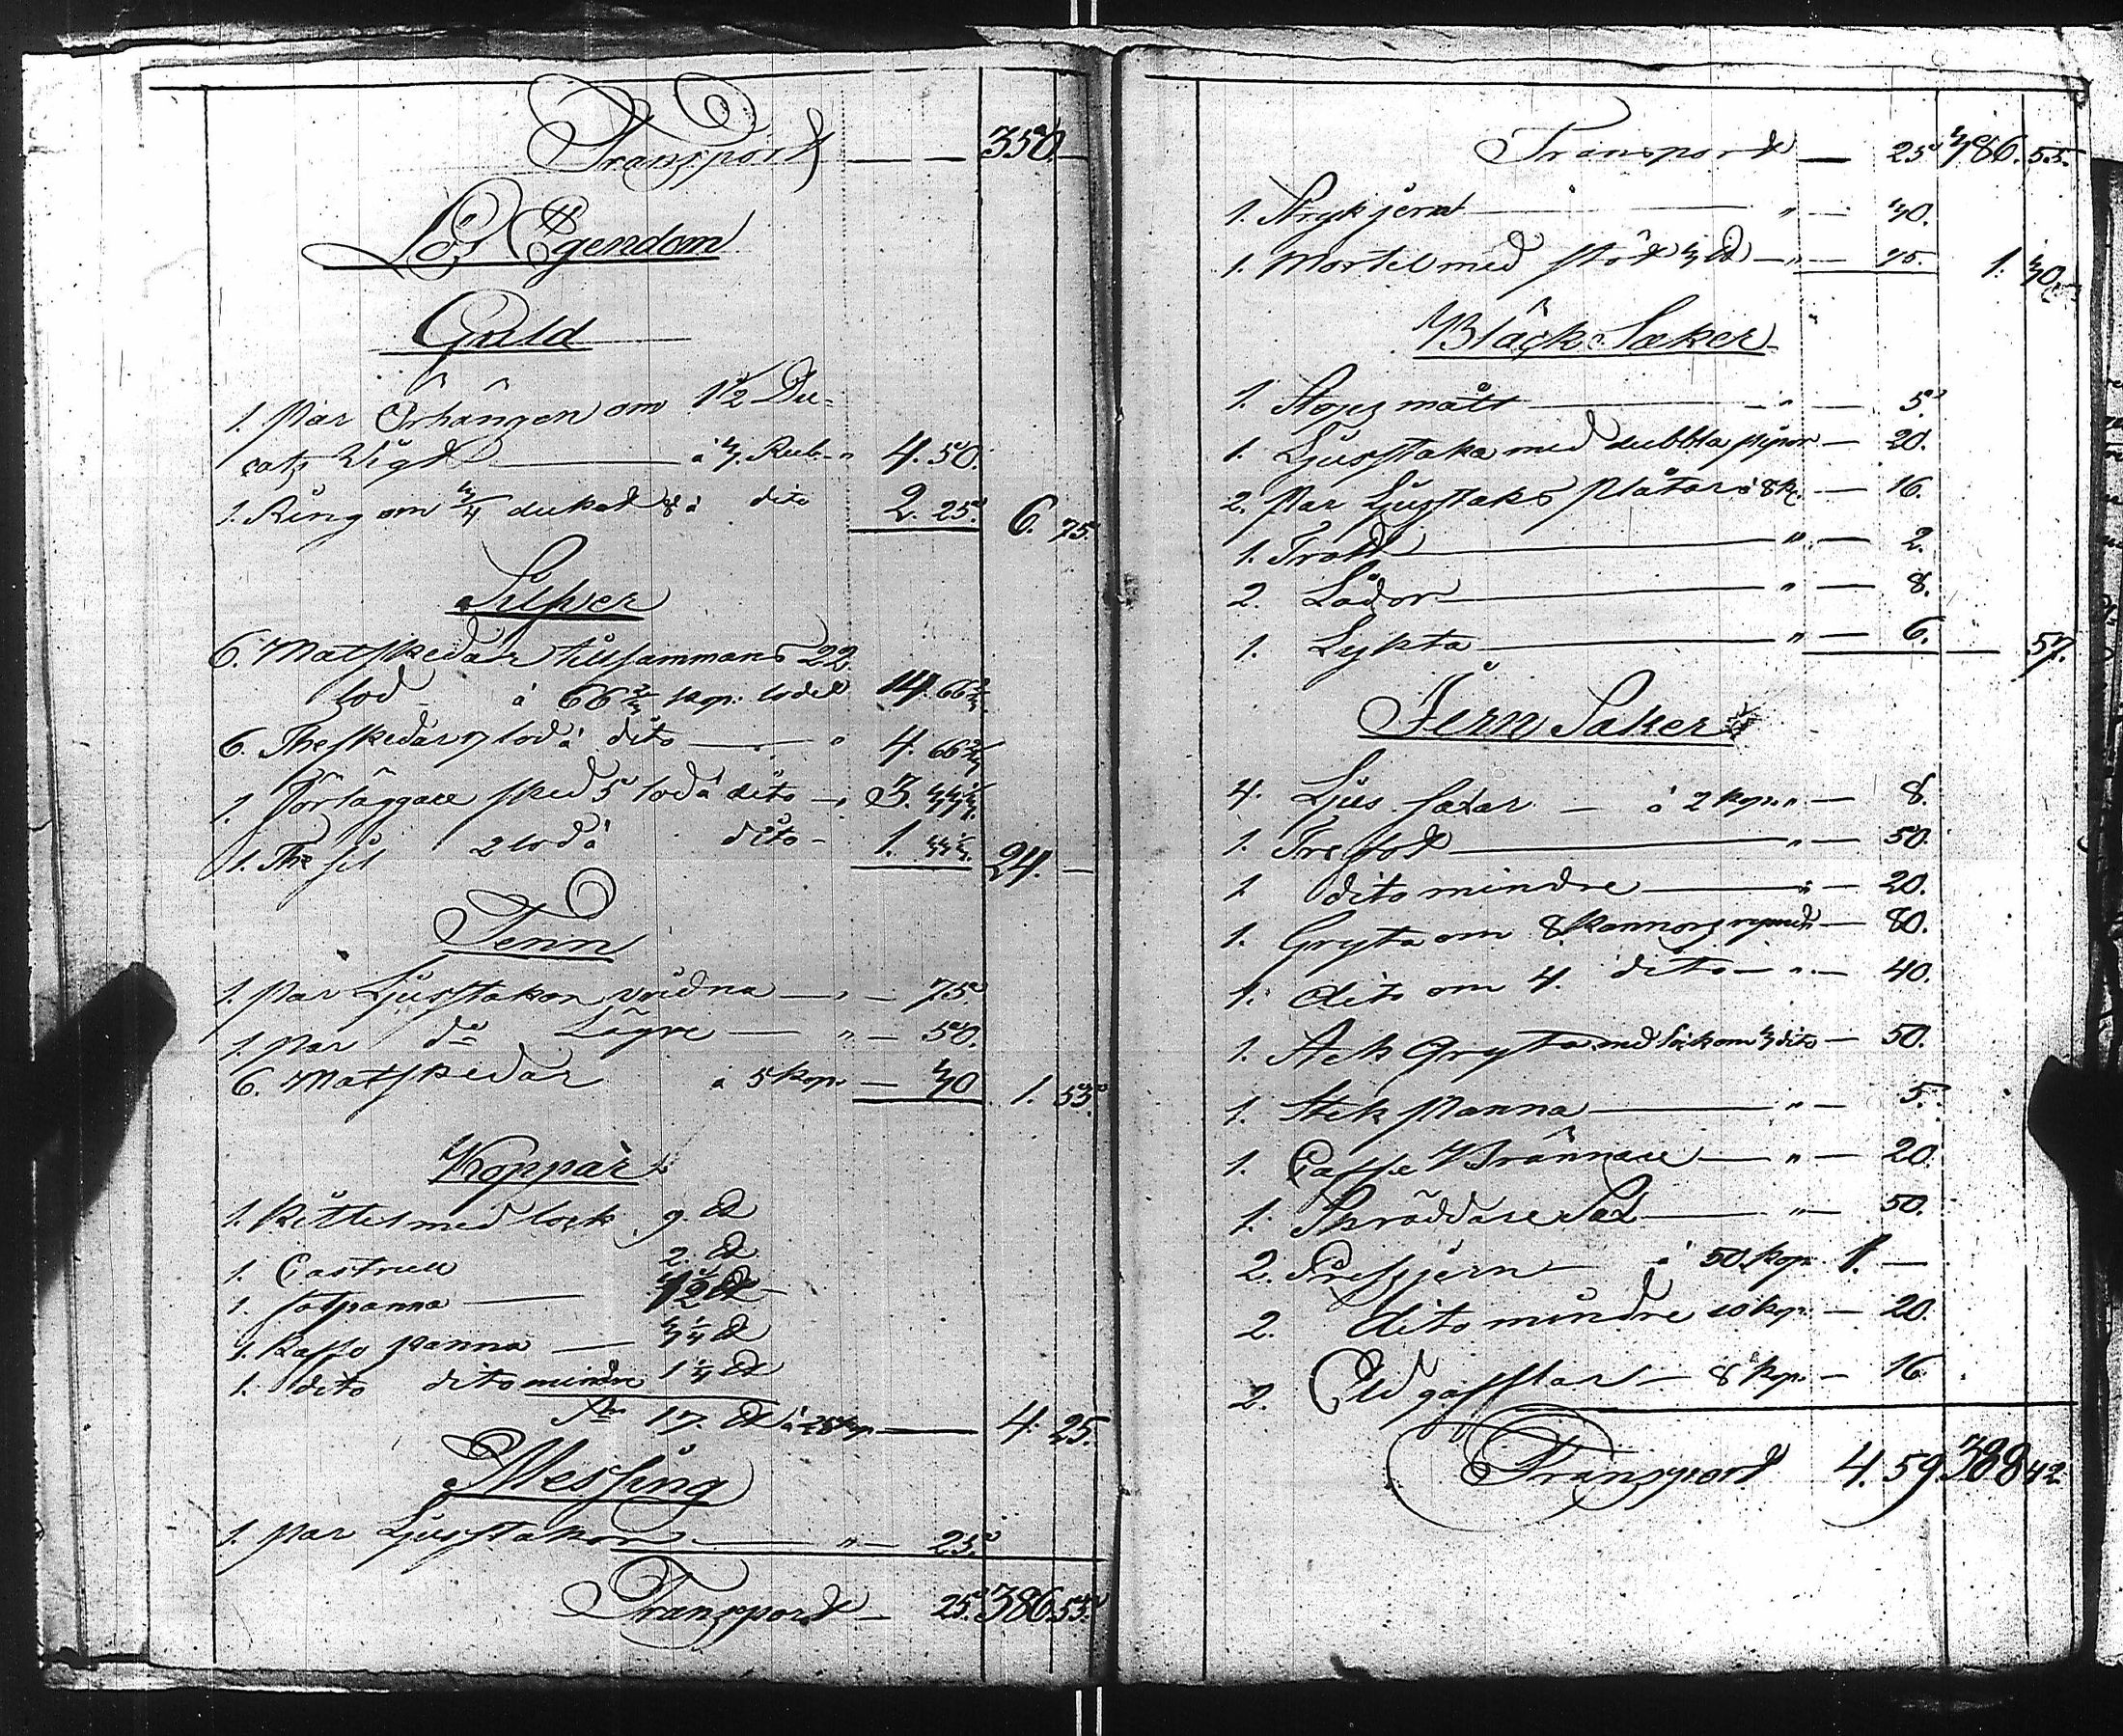 Transport — — 350. —
Lös Egendom
Guld
1. Par Örhängen om 1 1/2 Du-
catz Wigt — à 3. Rub. " 4. 50.
1. Ring om 3/4 dukat à dito 2. 25. 6. 75.
Silfver
6. Matskedar tillsammans 22
lod à 66 2/3 kop. lodet 14. 66 2/3.
6. Theskedar 7 lod à dito — " 4. 66 2/3
1. Förläggare sked 5 lod à dito — " 3. 33 1/3.
1. The sil 2 lod à dito — 1. 33 1/3. 24. —
Tenn
1. Par Ljusstakar vridna — " — 75.
1. Par do Lägre — " — 50.
6. Matskedar à 5 kop. — 30 1. 55.
Koppar
1. Kittel med lock 9. ℔
1. Castrull 2. ℔
1. fatpanna — 1 1/2 ℔
1. Kaffe panna — 3 1/4 ℔
1. dito dito mindre 1 1/4 ℔
Sa 17. ℔ à 25 kop — 4. 25.
Messing
1. Par Ljusstakar — " — 25.
Transport — 25. 386. 55.
Transport — 25. 386. 55.
1. Strykjern — " — 40.
1. Mortel med stöt 3 ℔ — " — 75. 1. 40.
Bläck Saker
1. Stops mått — " — 5.
1. Ljusstaka med dubbla pipor — 20.
2. Par Ljusstaks plåtar à 8 k. — 16.
1. Tratt — " — 2.
2. Lådor — " — 8.
1. Lykta — " — 6. — 57.
Jern Saker
4. Ljus saxar — à 2 kop. " — 8.
1. Trefot — " — 50.
1. dito mindre — " — 20.
1. Gryta om 8. kannors rymd — 80.
1. dito om 4. dito — " — 40.
1. Stek Gryta med lock om 3 dito — 50.
1. Stek Panna — " — 5.
1. Caffe Brännare — " — 20.
1. Skräddare Sax — " — 50.
2. Presjern — à 50 kop. 1. —
2. dito mindre 10 kop. — 20.
2. Eld gafflar — 8 kop. — 16.
Transport 4. 59. 388 42